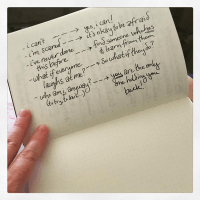 - i can't ----→ yes, i can!
- i'm scared ----→ it's okay to be afraid
- i've never done this before. ----→ find someone who has & learn from them
- what if everyone laughs at me? ----→ so what if they do?
- who am i, anyway? (to try to be...) ----→ you are the only one holding you back!